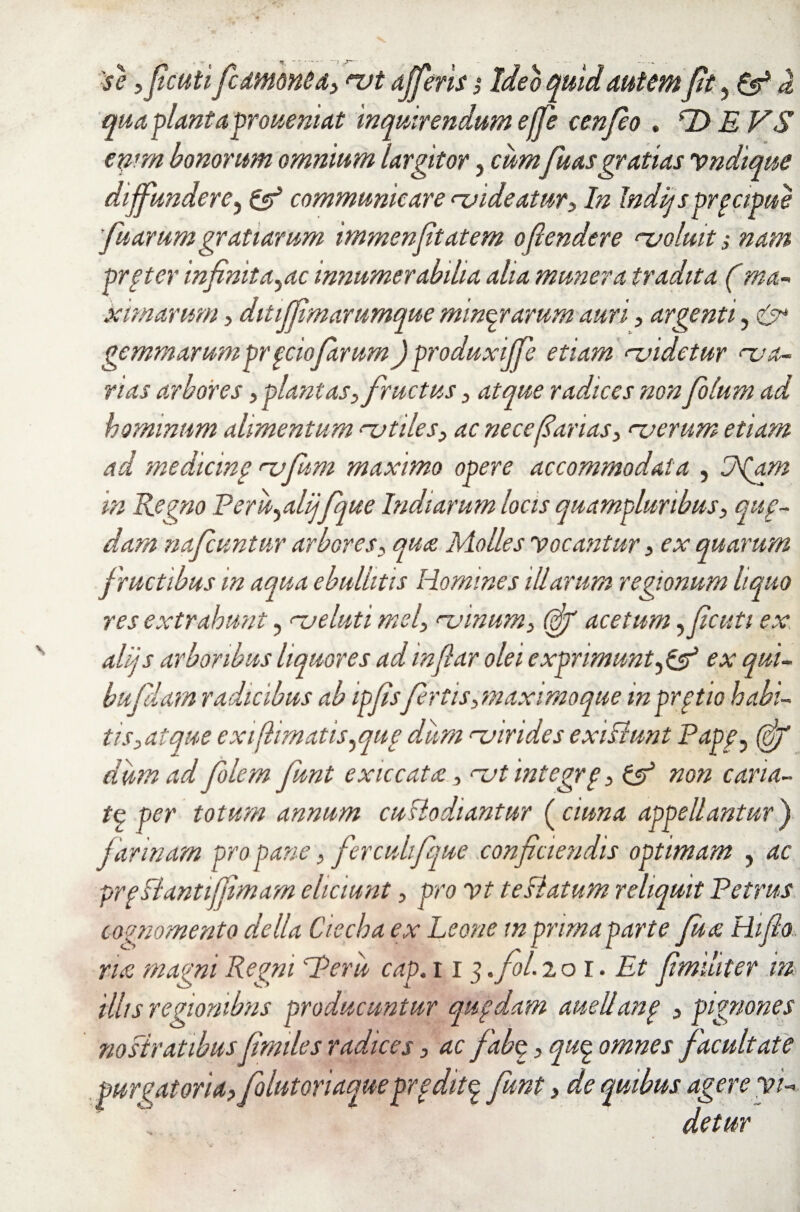 se, ſicuti ſcamonea, vt aſſeris; Ideo quid autem ſit, & à
qua planta proueniat inquirendum eſſe cenſeo. DEVS
enim bonorum omnium largitor, cùm ſuas gratias vndique
diffundere, & communicare videatur, In Indijs pręcipuè
ſuarum gratiarum immenſitatem oſtendere voluit; nam
pręter infinita, ac innumerabilia alia munera tradita (ma-
ximarum, ditiſſimarumque minęrarum auri, argenti, &
gemmarum pręcioſarum) produxiſſe etiam videtur va-
rias arbores, plantas, fructus, atque radices non ſolum ad
hominum alimentum vtiles, ac neceſſarias, verum etiam
ad medicinę vſum maximo opere accommodata, Nam
in Regno Perù, alijſque Indiarum locis quampluribus, quę-
dam naſcuntur arbores, quæ Molles vocantur, ex quarum
fructibus in aqua ebullitis Homines illarum regionum liquo
res extrahunt, veluti mel, vinum, & acetum, ſicuti ex
alijs arboribus liquores ad inſtar olei exprimunt, & ex qui-
buſdam radicibus ab ipſis ſertis, maximoque in prętio habi-
tis, atque exiſtimatis, quę dùm virides exiſtunt Papę, &
dùm ad ſolem ſunt exiccatæ, vt integrę, & non caria-
tę per totum annum cuſtodiantur (ciuna appellantur)
farinam pro pane, ferculiſque conficiendis optimam, ac
pręſtantiſſimam eliciunt, pro vt teſtatum reliquit Petrus
cognomento della Ciecha ex Leone in prima parte ſuæ Hiſto
riæ magni Regni Perù cap. 113. fol. 201. Et ſimiliter in
illis regionibns producuntur quędam auellanę, pignones
noſtratibus ſimiles radices, ac fabę, quę omnes facultate
purgatoria, ſolutoriaque pręditę ſunt, de quibus agere vi-
detur